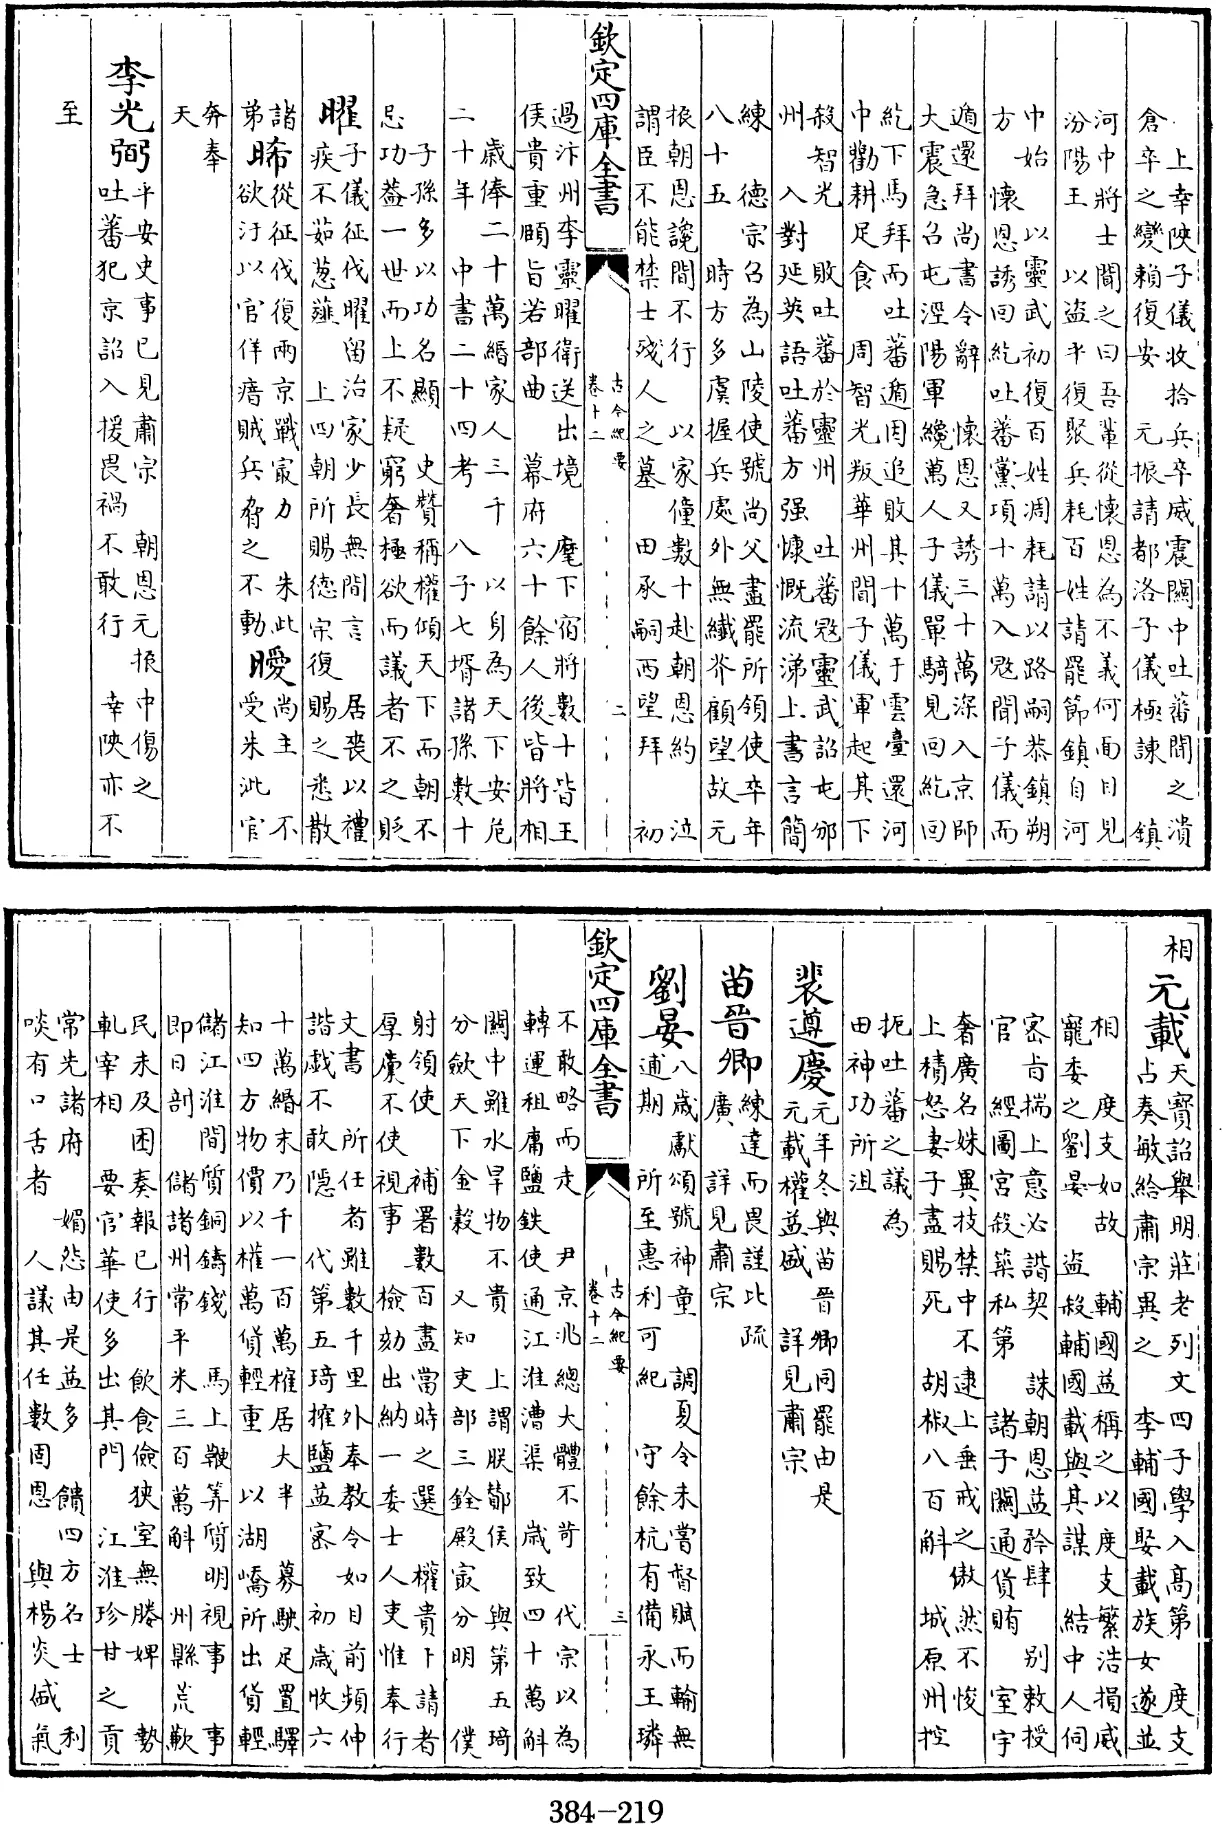 上幸陜子儀收拾兵卒威震關中吐蕃聞之潰
倉卒之變賴復安 元振請都洛子儀極諫 鎮
河中將士聞之曰吾輩從懷恩為不義何面目見
汾陽王 以盜平復聚兵耗百姓請罷節鎮自河
中始 以靈武初復百姓凋耗請以路嗣恭鎮朔
方 懷恩誘回紇吐蕃黨項十萬入冦聞子儀而
遁還拜尚書令辭 懷恩又誘三十萬深入京師
大震急召屯涇陽軍纔萬人子儀單騎見回紇回
紇下馬拜而吐蕃遁因追敗其十萬于雲臺還河
中勸耕足食 周智光叛華州間子儀軍起其下
殺智光 敗吐蕃於靈州 吐蕃冦靈武詔屯邠
州 入對延英語吐蕃方强慷慨流涕上書言簡
練 德宗召為山陵使號尚父盡罷所領使卒年
八十五 時方多虞握兵處外無纖芥顧望故元
振朝恩讒間不行 以家僮數十赴朝恩約 泣
謂臣不能禁士殘人之墓 田承嗣西望拜 初
欽定四庫全書 古今紀要 卷十二 二
過汴州李靈曜衛送出境 麾下宿將數十皆王
侯貴重頤旨若部曲 幕府六十餘人後皆將相
歲俸二十萬緡家人三千 以身為天下安危
二十年 中書二十四考 八子七壻諸孫數十
子孫多以功名顯 史贊稱權傾天下而朝不
忌功蓋一世而上不疑窮奢極欲而議者不之貶
曜 子儀征伐曜留治家少長無間言 居喪以禮
疾不茹葱薤 上四朝所賜德宗復賜之悉散
諸弟 晞 從征伐復兩京戰最力 朱泚
欲汙以官佯瘖賊兵脅之不動 曖 尚主 不
受朱泚官
奔奉
天
李光弼 平安史事已見肅宗 朝恩元振中傷之
吐蕃犯京詔入援畏禍不敢行 幸陜亦不
至
相
元載 天寶詔舉明莊老列文四子學入高第 度支
占奏敏給肅宗異之 李輔國娶載族女遂並
相 度支如故 輔國益稱之以度支繁浩損威
寵委之劉晏 盜殺輔國載與其謀 結中人伺
密旨揣上意必諧契 誅朝恩益矜肆 別敕授
官 經圖宮殺築私第 諸子關通貨賄 室宇
奢廣名姝異技禁中不逮上垂戒之傲然不悛
上積怒妻子盡賜死 胡椒八百斛 城原州控
扼吐蕃之議為
田神功所沮
裴遵慶 元年冬與苗晉卿同罷由是
元載權益盛 詳見肅宗
苗晉卿 練達而畏謹比疏
廣 詳見肅宗
劉晏 八歲獻頌號神童 調夏令未嘗督賦而輸無
逋期 所至惠利可紀 守餘杭有備永王璘
欽定四庫全書 古今紀要 卷十二 三
不敢略而走 尹京兆總大體不苛 代宗以為
轉運租庸鹽鉄使通江淮漕渠 歲致四十萬斛
關中雖水旱物不貴 上謂朕鄼侯 與第五琦
分斂天下金穀 又知吏部三銓殿最分明 僕
射領使 補署數百盡當時之選 權貴下請者
厚廩不使視事 檢劾出納一委士人吏惟奉行
文書 所任者雖數千里外奉教令如目前頻伸
諧戯不敢隱 代第五琦搉鹽益密 初歲收六
十萬緡末乃千一百萬搉居大半 募駛足置驛
知四方物價以權萬貨輕重 以湖嶠所出貨輕
儲江淮間質銅鑄錢 馬上鞭筭質明視事 事
即日剖 儲諸州常平米三百萬斛 州縣荒歉
民未及困奏報已行 飲食儉狹室無媵婢 勢
軋宰相 要官華使多出其門 江淮珍甘之貢
常先諸府 媢怨由是益多 饋四方名士 利
啖有口舌者 人議其任數固恩 與楊炎㒫氣
384-219